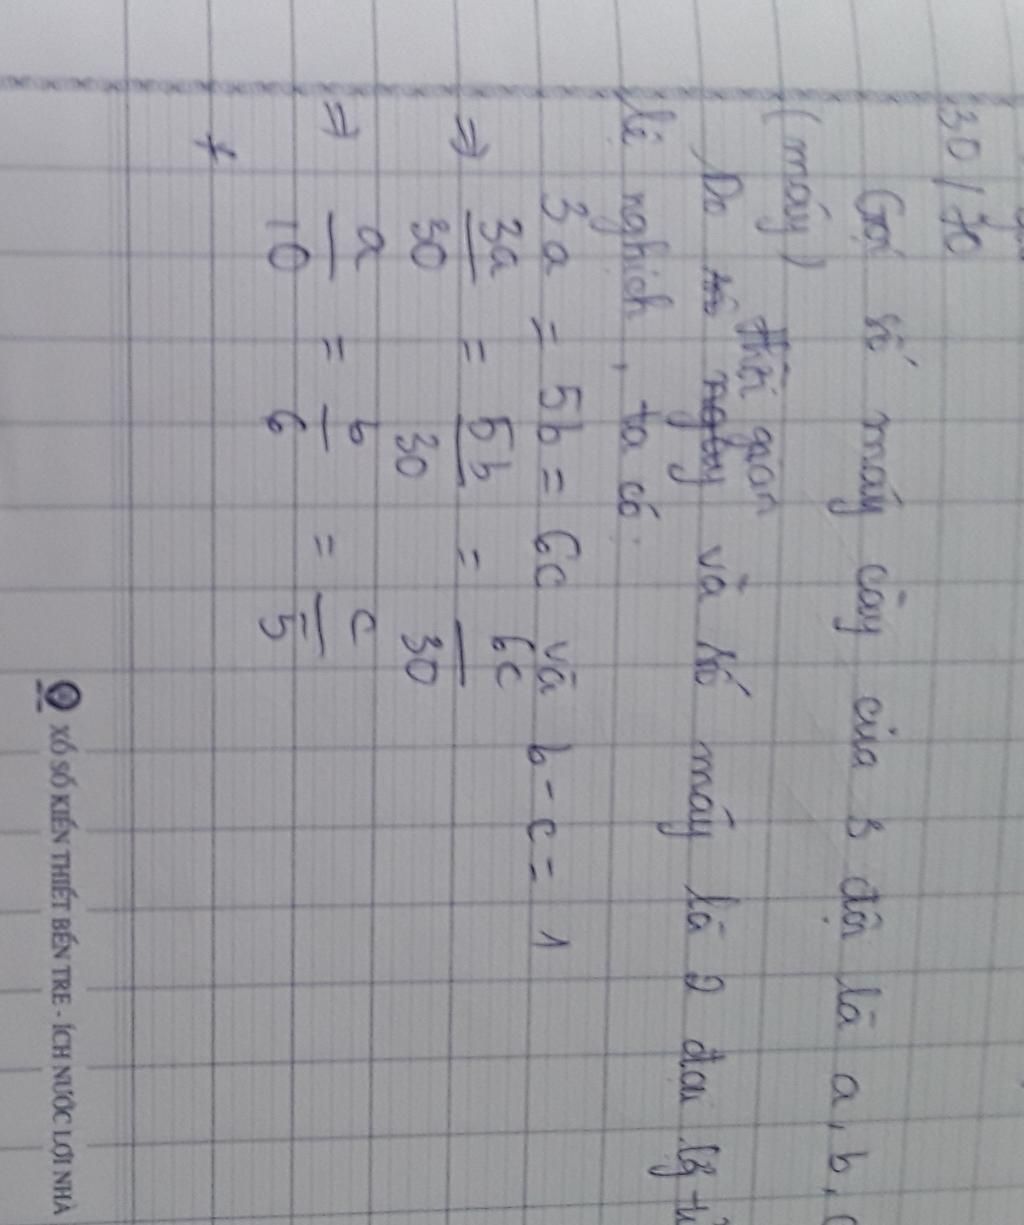 30/70
Gọi số máy cày của 3 đội là a, b, c
(máy)
thời gian
Do số ngày và số máy là 2 đại lg tỉ
lệ nghịch, ta có:
3a = 5b = 6c và b - c = 1
⇒ 3a/30 = 5b/30 = 6c/30
⇒ a/10 = b/6 = c/5
*
XỔ SỐ KIẾN THIẾT BẾN TRE - ÍCH NƯỚC LỢI NHÀ